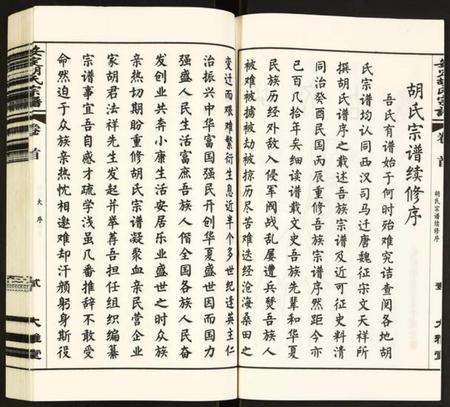 胡氏宗谱续修序
吾氏有谱始于何时殆难究诘查阅各地胡
氏宗谱均认同西汉司马迁唐魏征宋文天祥所
撰胡氏谱序之载述吾族宗谱及近可征史料清
同治癸酉民国丙辰重修吾族宗谱序然距今亦
已百几拾年矣细读谱载文史吾族先辈和华夏
民族历经外敌入侵军阀战乱屡遭兵燹吾族人
被难被掳被劫被掠历尽苦难迭经沧海桑田之
变迁而艰难繁衍生息近半个多世纪逢英主仁
治振兴中华富国强民开创华夏盛世因而国力
强盛人民生活富庶吾族人偕全国各族人民奋
发创业共奔小康生活安居乐业盛世之时众族
亲热切期盼重修胡氏宗谱凝聚血亲民营企业
家胡君法祥先生发起并举荐吾担任组织编纂
宗谱事宜吾自惑才疏学浅虽几番推辞不敢受
命然迫于众族亲热忱相邀难却汗颜躬身斯役
卷首
大序
贰
大雅堂